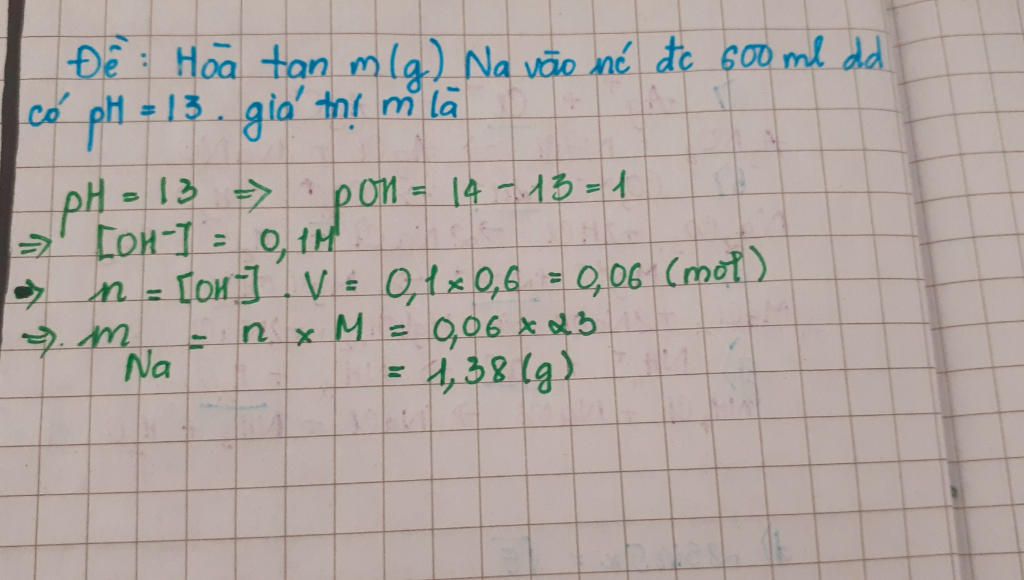 Đề: Hõa tan m(g) Na vão nć đc 600ml dd
có pH = 13. giá trị m lã
pH = 13 => pOH = 14 - 13 = 1
=> [OH⁻] = 0,1M
=> n = [OH⁻] . V = 0,1 x 0,6 = 0,06 (mol)
=> m Na = n x M = 0,06 x 23
= 1,38 (g)